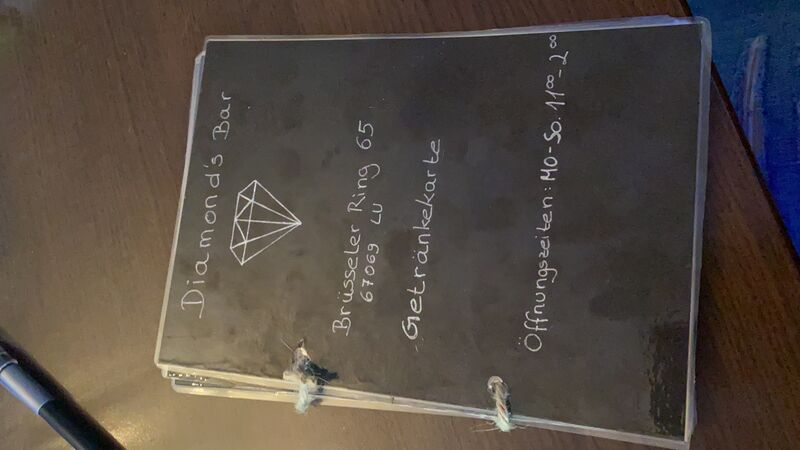 Diamond's Bar
Brüsseler Ring 65
67069 LU
Getränkekarte
Öffnungszeiten: MO-So. 11⁰⁰-2⁰⁰